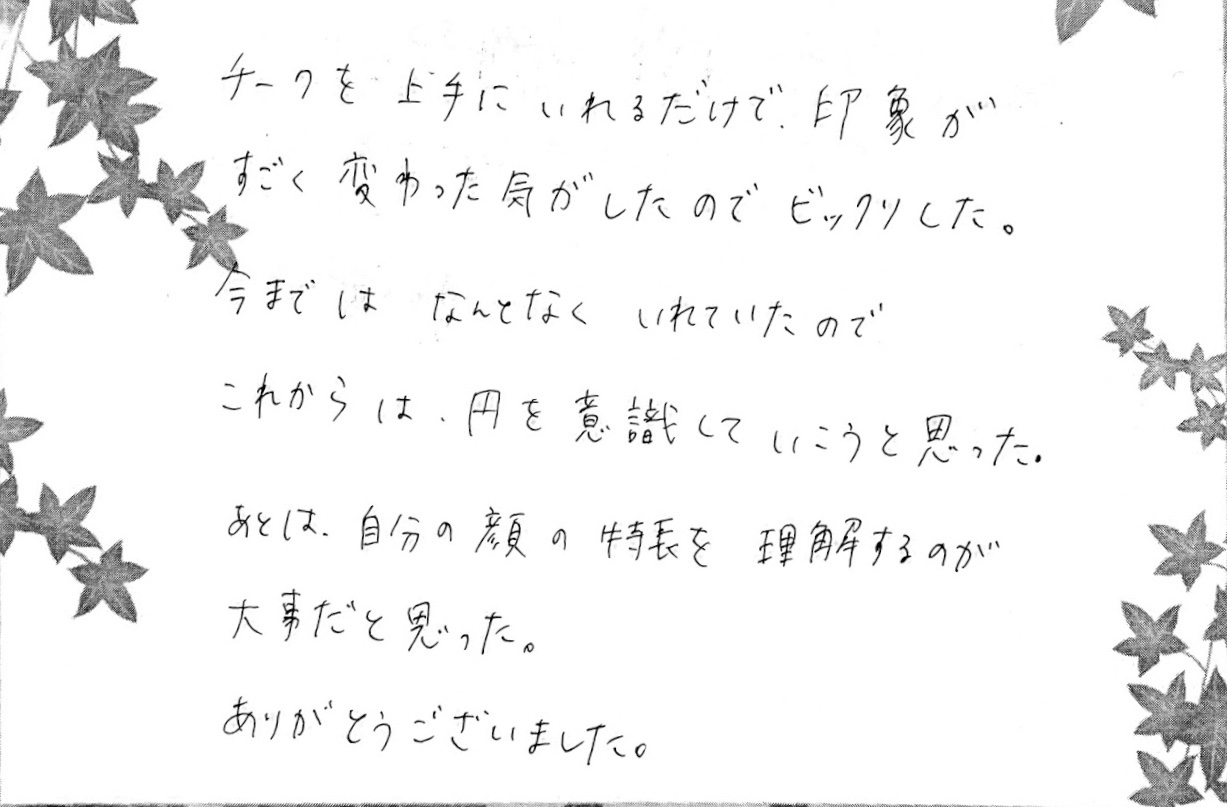 チークを上手にいれるだけで、印象が
すごく変わった気がしたのでビックリした。
今までは なんとなく いれていたので
これからは、円を意識していこうと思った。
あとは、自分の顔の特長を 理解するのが
大事だと思った。
ありがとうございました。